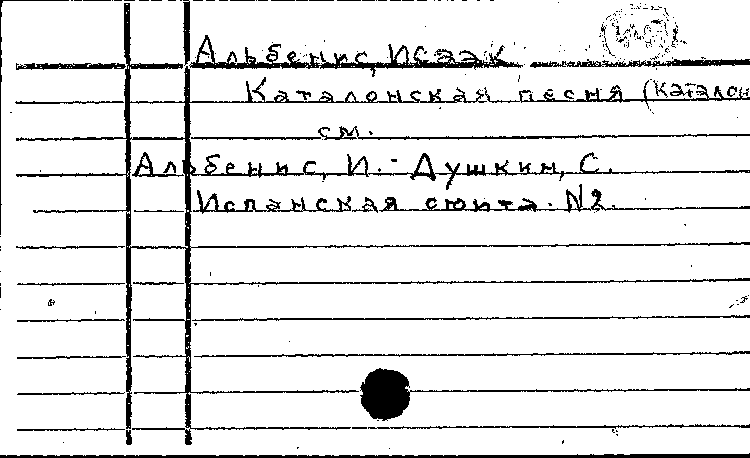 Альбенис, Исаак
Каталонская песня (Каталон
см.
Альбенис, И. - Душкин, С.
Испанская сюита. N2.